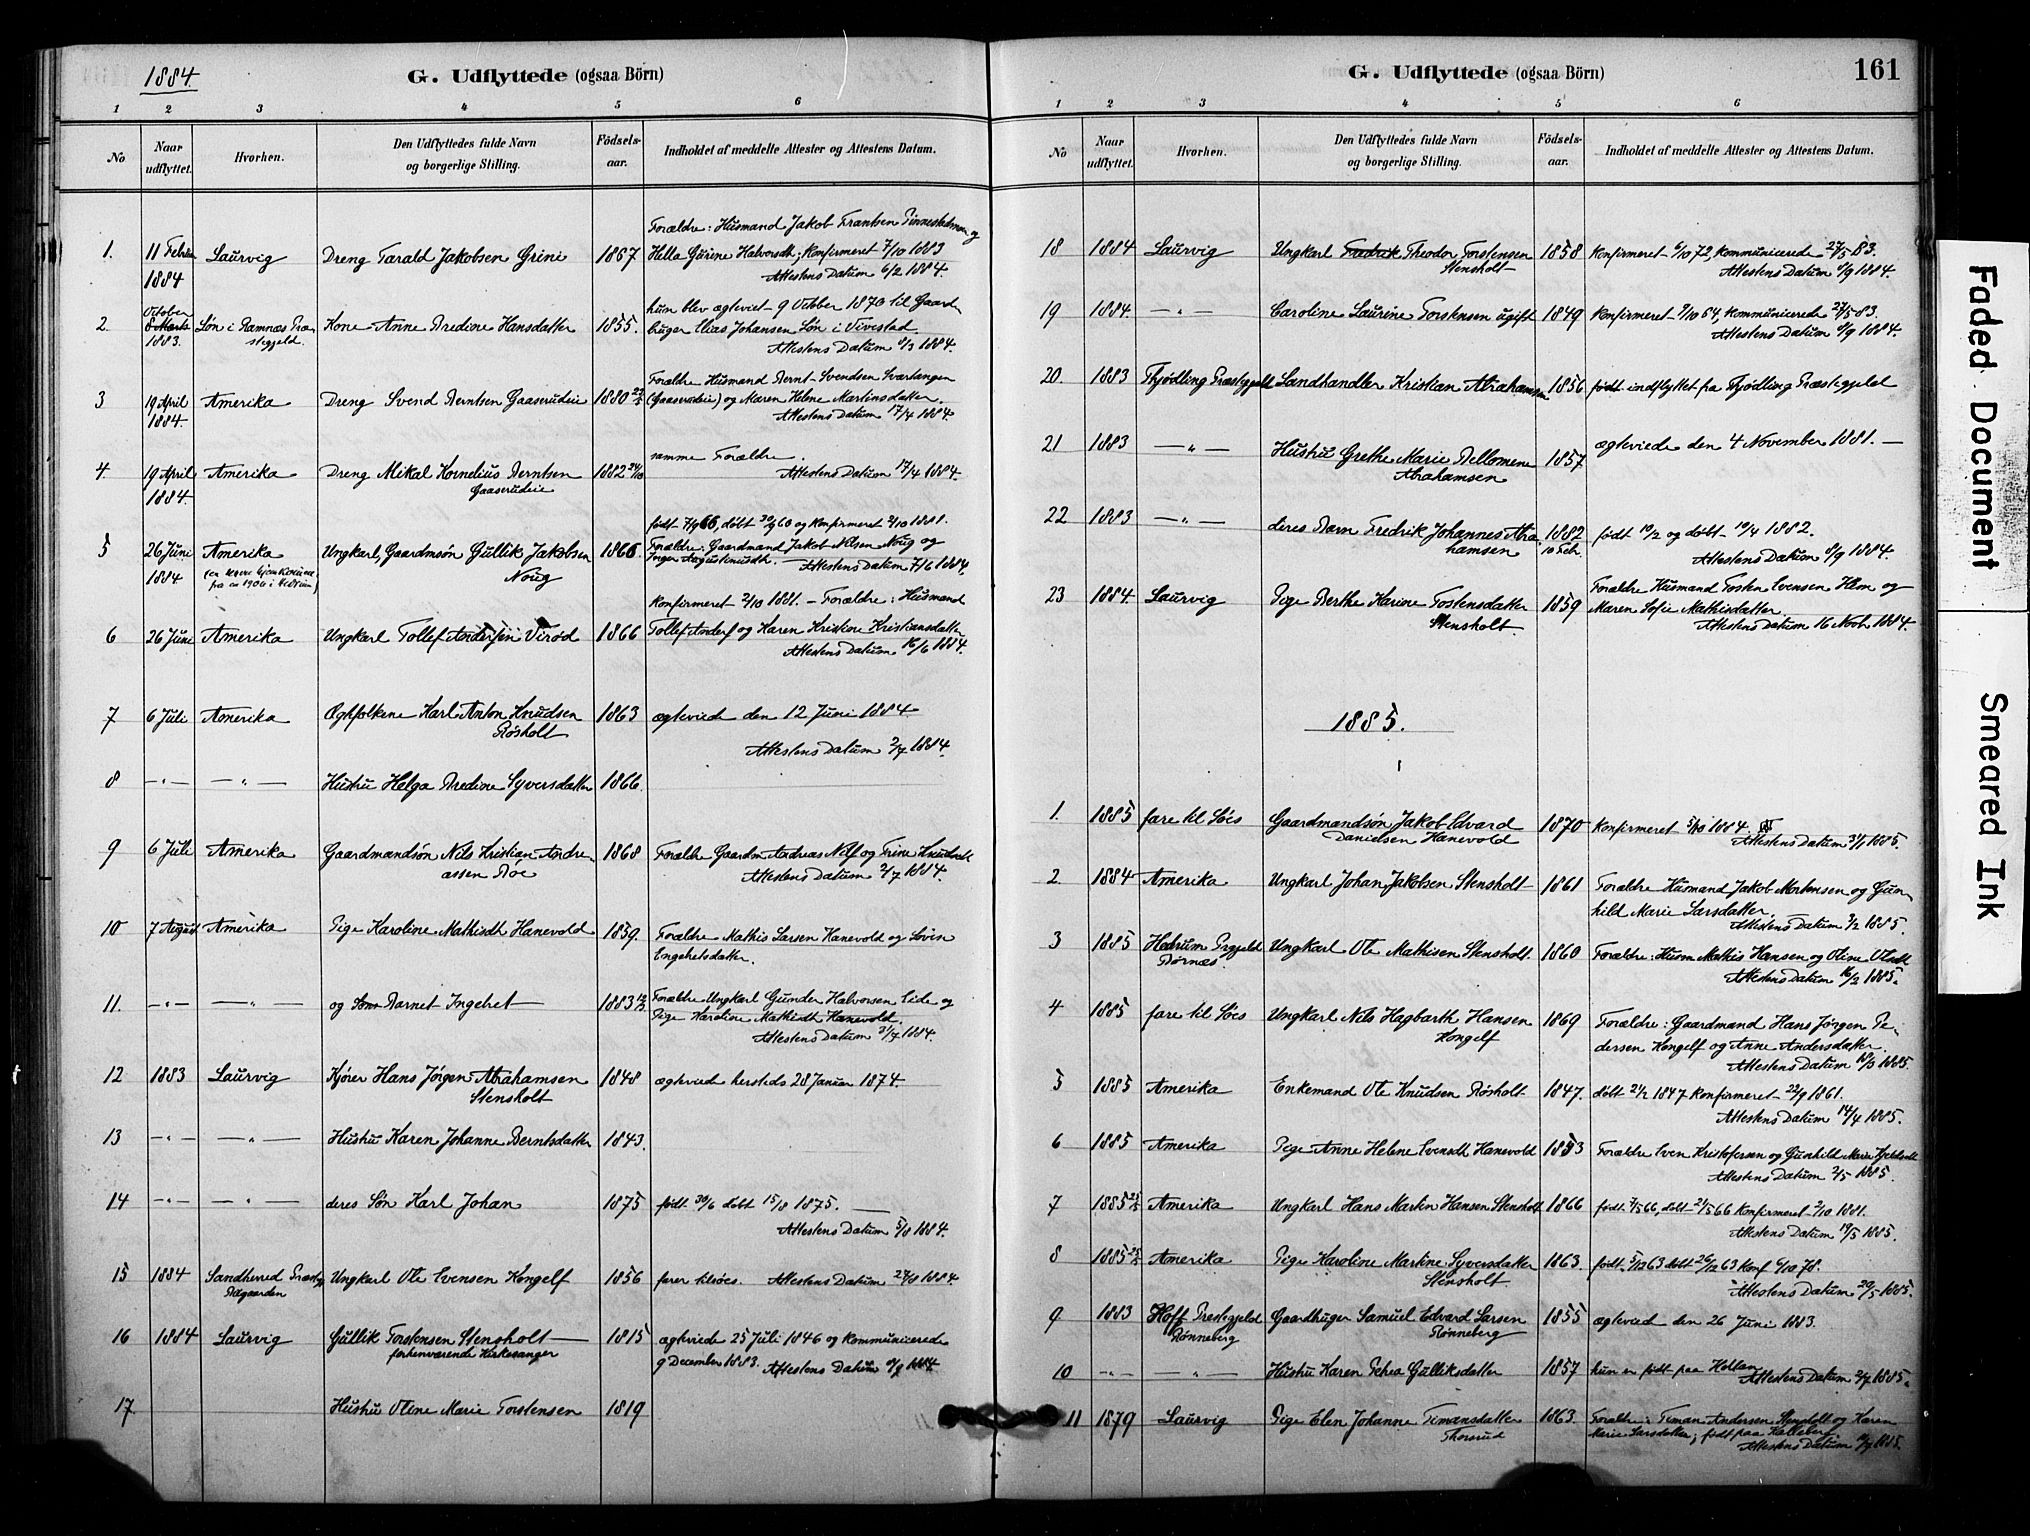 1884.
G. Udflyttede (ogsaa Börn)
1 2 3 4 5 6
No
Naar udflyttet.
Hvorhen.
Den Udflyttedes fulde Navn og borgerlige Stilling.
Födsels-aar.
Indholdet af meddelte Attester og Attestens Datum.
Forældre: Husmand Jakob Frantsen
1. 11 Februar Laurvig Dreng Tarald Jakobsen Grini 1867 Helle Gurine Halvorsdt; Konfirmeret 7/10 1883
1884 Attestens Datum 6/2 1884.
October hun blev ægteviet 9 October 1870 til Gaard-
2. 8 Marts Løn i Ramnæs Præ- Kone Anne Bredine Hansdatter 1855. bruger Elias Johansen Løn i Vivestad
1883. stegjeld. Attestens Datum 8/3 1884.
Forældre Husmand Bernt Svendsen Svartangen
3 19 April Amerika Dreng Svend Berntsen Gaaserudeie 1880 (Gaaserudeie) og Maren Helene Martinsdatter.
1884 Attestens Datum 17/4 1884
samme Forældre.
4. 19 April Amerika Dreng Mikal Kornelius Berntsen 1882 24/10 Attestens Datum 17/4 1884.
1884. Gaaserudeie
født 7/9 66, døbt 30/9 60 og konfirmeret 2/10 1881.
5 26 Juni Amerika Ungkarl, Gaardmsøn Gullik Jakobsen 1866. Forældre: Gaardmand Jakob Nilsen Noug og
1884 Noug Inger Augustinusdt. Attestens Datum 7/6 1884.
fra ca 1900 i Hedrum)
Konfirmeret 2/10 1881. – Forældre: Husmand
6 26 Juni Amerika Ungkarl Tollef Andersen Virød 1866 Tollef Anders og Karen Kristine Kristiansdatter
Attestens Datum 16/6 1884.
7 6 Juli Amerika Ægtefolkene Karl Anton Knudsen 1863 ægteviede den 12 Juni 1884.
Røsholt
Attestens Datum 2/7 1884.
8 –"– –"– Hustru Helga Bredine Syversdatter 1866.
9 6 Juli Amerika Gaardmandsøn Nils Kristian Andre- 1868 Forældre Gaardm Andreas Nils og Trine Knudsdt
assen Røe Attestens Datum 2/7 1884.
10 7 August Amerika Pige Karoline Mathisdt Hanevold 1859. Forældre Mathis Larsen Hanevold og Søven
Engebretsdatter.
11. –"– –"– og Søn Barnet Ingebret 1883 Forældre Ungkarl Gunder Halvorsen Eide og
Pige Karoline Mathisdt Hanevold.
Attestens Datum 31/7 1884.
12 1883 Laurvig Kjører Hans Jørgen Abrahamsen 1848 ægteviede hersteds 28 Januar 1874
Stensholt
13 –"– –"– Hustru Karen Johanne Berntsdatter 1843.
14 –"– –"– deres Søn Karl Johan 1875 født 30/6 døbt 15/8 1875.
Attestens Datum 5/8 1884.
15 1884 Sandherred Præstegj Ungkarl Ole Evensen Kongelf 1856 farer tilsøes. Attestens Datum 27/8 1884
16 1884 Laurvig Gullik Torstensen Stensholt 1815 ægteviede 25 Juli 1846 og kommunicerede
forhenværende Kirkesanger 9 December 1883. Attestens Datum 8/9 1884
17. Hustru Oline Marie Torstensen 1819
G. Udflyttede (ogsaa Börn)
161
1 2 3 4 5 6
No
Naar udflyttet.
Hvorhen.
Den Udflyttedes fulde Navn og borgerlige Stilling.
Födsels-aar.
Indholdet af meddelte Attester og Attestens Datum.
18 1884 Laurvig Ungkarl Fredrik Theodor Torstensen 1858 Konfirmeret 6/10 72, kommunicerede 27/5 83.
Stensholt Attestens Datum 8/9 1884.
19 1884. –"– Caroline Laurine Torstensen ugift 1849 Konfirmeret 9/10 64, kommunicerede 27/5 83.
Attestens Datum 8/9 1884.
20. 1883 Thjødling Præstegjeld Landhandler Kristian Abrahamsen 1856 født indflyttet fra Thjødling Præstegjeld
21 1883 –"– Hustru Grethe Marie Bellomene 1857 ægteviede den 4 November 1881. –
Abrahamsen
22 1883 –"– deres Barn Fredrik Johannes Abra- 1882 født 10/2 og døbt 10/4 1882.
hamsen 10 Feb. Attestens Datum 8/9 1884.
23 1884. Laurvig Pige Berthe Karine Tostensdatter 1859 Forældre Husmand Tosten Evensen Holm og
Stensholt. Maren Sofie Mathisdatter.
Attestens Datum 16 Novb 1884.
1885.
1. 1885 fare til Søes Gaardmandsøn Jakob Edvard 1870 Konfirmeret 5/10 1884.
Danielsen Hanevold Attestens Datum 31/1 1885.
2. 1884 Amerika Ungkarl Johan Jakobsen Stensholt 1861 Forældre Husmand Jakob Mortensen og Gun-
hild Marie Larsdatter.
Attestens Datum 3/2 1885.
3 1885 Hedrum Prgjeld Ungkarl Ole Mathisen Stensholt. 1860 Forældre: Husm Mathis Hansen og Oline Olsdt
Børnæs. Attestens Datum 16/2 1885.
4 1885 fare til Søes Ungkarl Nils Hagbarth Hansen 1869 Forældre: Gaardmand Hans Jørgen Pe-
Kongelf dersen Kongelf og Anne Andersdatter.
Attestens Datum 10/3 1885.
5 1885 Amerika Enkemand Ole Knudsen Røsholt 1847. døbt 21/2 1847 Konfirmeret 22/9 1861.
Attestens Datum 14/4 1885.
6 1885 Amerika Pige Anne Helene Evensdt Hanevold 1853 Forældre Even Kristofersen og Gunhild Marie Kjeldsdt
Attestens Datum 2/5 1885.
7 1885 Amerika Ungkarl Hans Martin Hansen Stensholt 1866 født 7/5 66, døbt 21/5 66 Konfirmeret 2/10 1881.
Attestens Datum 19/5 1885.
8 1885 Amerika Pige Karoline Martine Syversdatter 1863. født 5/12 63 døbt 26/12 63 Konf 6/10 78.
Stensholt. Attestens Datum 20/5 1885.
9 1883 Hoff Prestegjeld Gaardbruger Samuel Edvard Larsen 1855 ægteviede den 26 Juni 1883.
Rønneberg Rønneberg
10 –"– –"– Hustru Karen Thea Gulliksdatter 1857 hun er født paa
Attestens Datum 2/7 1885.
11 1879 Laurvig Pige Elen Johanne Timansdatter 1863. Forældre: Timan Andersen Stensholt og Karen
Thorsrud Marie Larsdatter; født paa
Attestens Datum 1885.
Faded Document
Smeared Ink